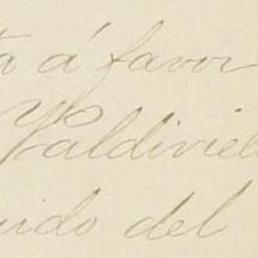 ta á favor
Valdiviel
uido del